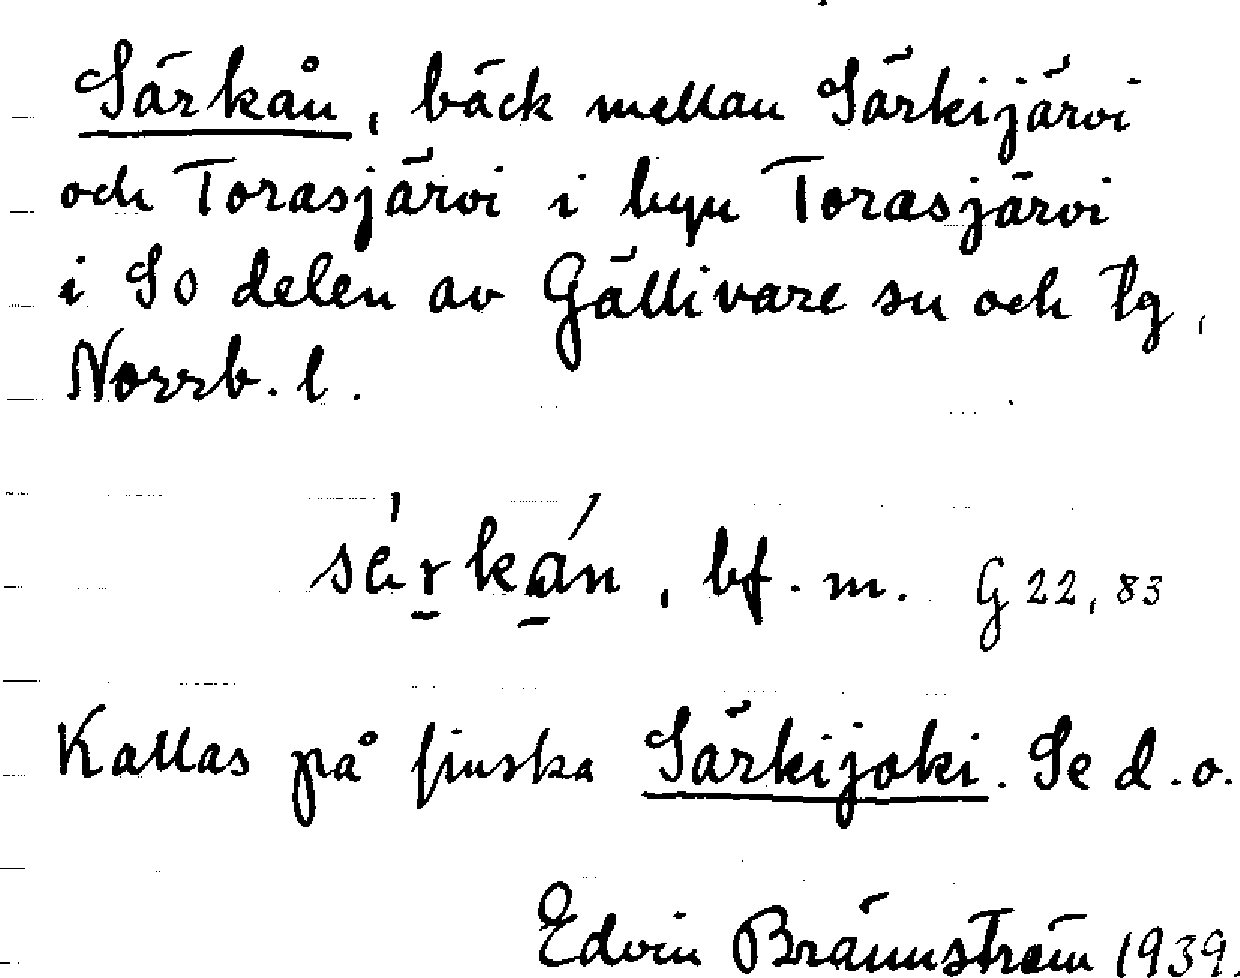 Särkån, bäck mellan Särkijärvi
och Torasjärvi i byn Torasjärvi
i So delen av Gällivare sn och tg,
Norrb. l.
bf. m. G 22, 83
Kallas på finska Särkijoki. Se d. o.
Edvin Brännström 1939.